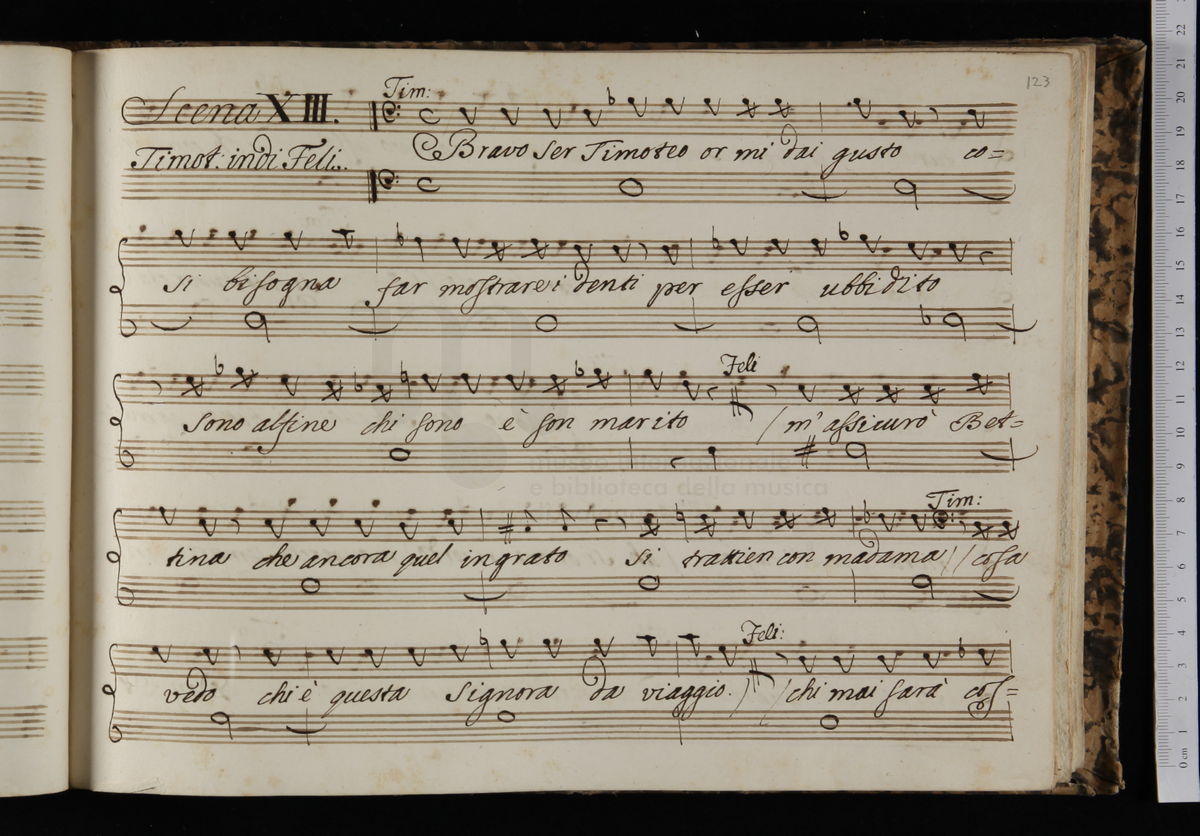 123
Tim:
Scena XIII.
Timot. indi Feli.
Bravo Ser Timoteo or mi dai gusto co=
si bisogna far mostrare i denti per esser ubbidito
Feli
sono alfine chi sono è son marito / m'assicurò Bet=
Tim:
tina che ancora quel ingrato si trattien con madama / / cosa
Feli:
vedo chi è questa Signora da viaggio. / / chi mai sarà cos=
museo internazionale
e biblioteca della musica
0 cm 1 2 3 4 5 6 7 8 9 10 11 12 13 14 15 16 17 18 19 20 21 22